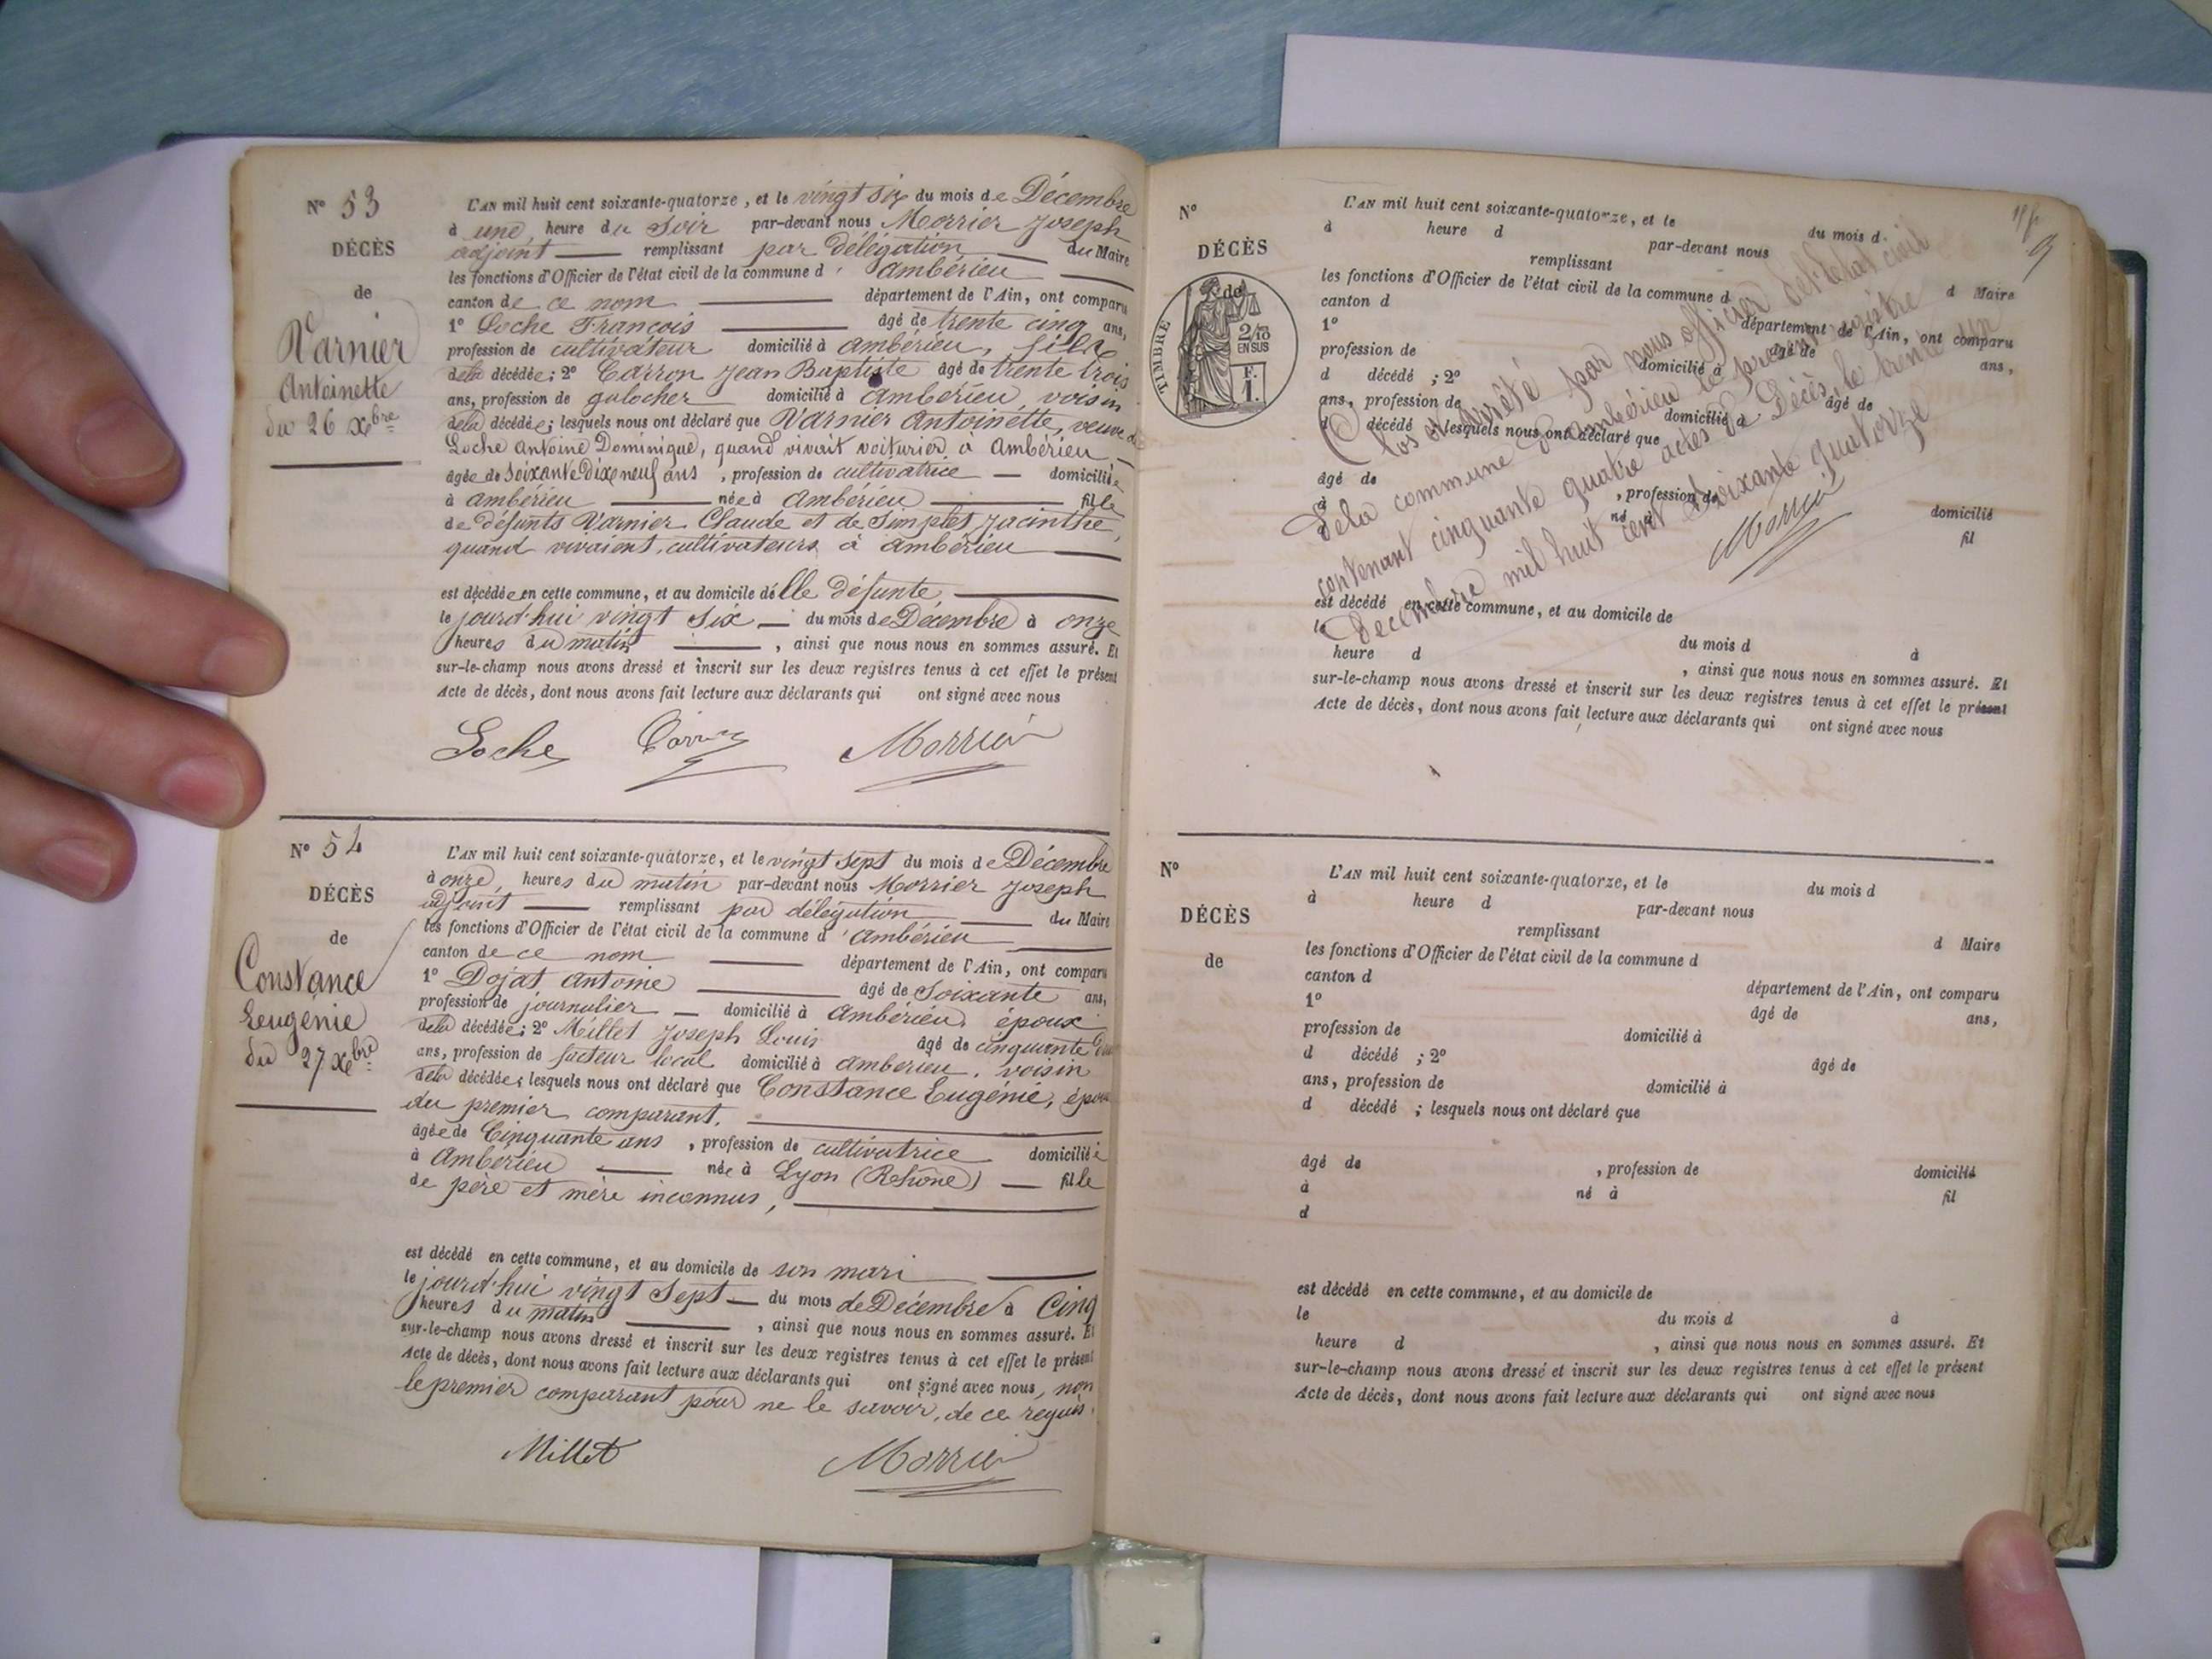 N° 53
DÉCÈS
de
Varnier
Antoinette
du 26 Xbre
L'AN mil huit cent soixante-quatorze, et le vingt six du mois de Décembre
à une heure du Soir par-devant nous Morrier Joseph
adjoint remplissant par délégation du Maire
les fonctions d'Officier de l'état civil de la commune d'Ambérieu
canton de ce nom département de l'Ain, ont comparu
1° Loche François âgé de trente cinq ans,
profession de cultivateur domicilié à Ambérieu, fils
de la décédée; 2° Carron Jean Baptiste âgé de trente trois
ans, profession de galocher domicilié à Ambérieu, voisin
de la décédée; lesquels nous ont déclaré que Varnier Antoinette, veuve de
Loche Antoine Dominique, quand vivait voiturier à Ambérieu
âgée de Soixante Dix neuf ans, profession de cultivatrice domiciliée
à Ambérieu née à Ambérieu fille
de défunts Varnier Claude et de Simplet Jacinthe,
quand vivaient cultivateurs à Ambérieu
est décédée en cette commune, et au domicile de lle défunte
le jourd'hui vingt six du mois de Décembre à onze
heures du matin, ainsi que nous nous en sommes assuré. Et
sur-le-champ nous avons dressé et inscrit sur les deux registres tenus à cet effet le présent
Acte de décès, dont nous avons fait lecture aux déclarants qui ont signé avec nous
Loche Carron Morrier
N° 54
DÉCÈS
de
Constance
Eugénie
du 27 Xbre
L'AN mil huit cent soixante-quatorze, et le vingt sept du mois de Décembre
à onze heures du matin par-devant nous Morrier Joseph
adjoint remplissant par délégation du Maire
les fonctions d'Officier de l'état civil de la commune d'Ambérieu
canton de ce nom département de l'Ain, ont comparu
1° Dojat Antoine âgé de Soixante ans,
profession de journalier domicilié à Ambérieu, époux
de la décédée; 2° Millet Joseph Louis âgé de cinquante
ans, profession de facteur local domicilié à Ambérieu, voisin
de la décédée; lesquels nous ont déclaré que Constance Eugénie, épouse
du premier comparant,
âgée de Cinquante ans, profession de cultivatrice domiciliée
à Ambérieu née à Lyon (Rhône) fille
de père et mère inconnus,
est décédé en cette commune, et au domicile de son mari
le jourd'hui vingt Sept du mois de Décembre à Cinq
heures du matin, ainsi que nous nous en sommes assuré. Et
sur-le-champ nous avons dressé et inscrit sur les deux registres tenus à cet effet le présent
Acte de décès, dont nous avons fait lecture aux déclarants qui ont signé avec nous, non
le premier comparant pour ne le savoir, de ce requis.
Millet Morrier
N°
DÉCÈS
de
TIMBRE
2/10
EN SUS
F.
1.
L'AN mil huit cent soixante-quatorze, et le du mois d
à heure d par-devant nous
remplissant d Maire
les fonctions d'Officier de l'état civil de la commune d
canton d département de l'Ain, ont comparu
1° âgé de ans,
profession de domicilié à
d décédé ; 2° âgé de
ans, profession de domicilié à
d décédé ; lesquels nous ont déclaré que
âgé de , profession de domicilié
à né à fil
d
Clos et arrêté par nous officier de l'état civil
de la commune d'Ambérieu le présent registre
contenant cinquante quatre actes de Décès, le trente un
Decembre mil huit cent Soixante quatorze
Morrier
est décédé en cette commune, et au domicile de
le du mois d à
heure d , ainsi que nous nous en sommes assuré. Et
sur-le-champ nous avons dressé et inscrit sur les deux registres tenus à cet effet le présent
Acte de décès, dont nous avons fait lecture aux déclarants qui ont signé avec nous
N°
DÉCÈS
de
L'AN mil huit cent soixante-quatorze, et le du mois d
à heure d par-devant nous
remplissant d Maire
les fonctions d'Officier de l'état civil de la commune d
canton d département de l'Ain, ont comparu
1° âgé de ans,
profession de domicilié à
d décédé ; 2° âgé de
ans, profession de domicilié à
d décédé ; lesquels nous ont déclaré que
âgé de , profession de domicilié
à né à fil
d
est décédé en cette commune, et au domicile de
le du mois d à
heure d , ainsi que nous nous en sommes assuré. Et
sur-le-champ nous avons dressé et inscrit sur les deux registres tenus à cet effet le présent
Acte de décès, dont nous avons fait lecture aux déclarants qui ont signé avec nous